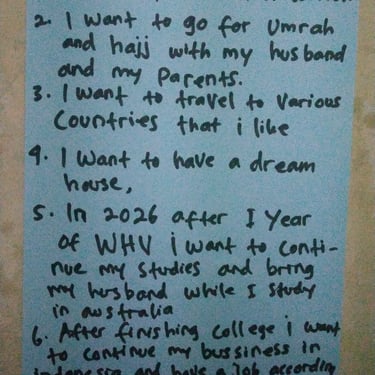 2. I want to go for Umrah
and hajj with my husband
and my parents.
3. I want to travel to various
countries that i like
4. I want to have a dream
house,
5. In 2026 after I Year
of WHV i want to conti-
nue my studies and bring
my husband while I study
in australia
6. After finishing college i want
to continue my bussiness in
indonesia and have a Job according